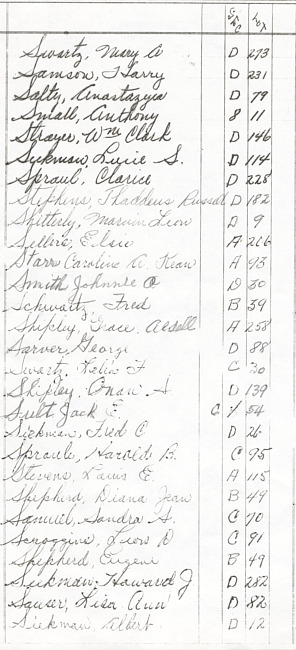 Sec Lot
Swartz, Mary A D 273
Samson, Harry D 231
Salty, Anastazyia D 79
Small, Anthony 8 11
Strayer, Wm Clark D 146
Sickman, Lucie S. D 114
Sproul, Clarice D 228
Stephens, Thaddeus Russell D 182
Shitterly, Marvin Leon D 9
Sellers, Elsie A 266
Starr Caroline A. Kean A 93
Smith Johnnie O D 30
Schwartz, Fred B 39
Shipley, Grace Aedell A 258
Sarver, George D 88
Swartz, Helen F C 30
Shipley, Onan A D 139
Sult Jack E. C 54
Sickman, Fred C D 26
Sproule, Harold B. C 95
Stevens, Louis E. A 115
Shepherd, Diana Jean B 49
Samuel, Sandra S. C 70
Scroggins, Leon D C 91
Shepherd, Eugene B 49
Sickman, Howard J D 282
Sauser, Lisa Ann D 82
Sickman, Albert D 12